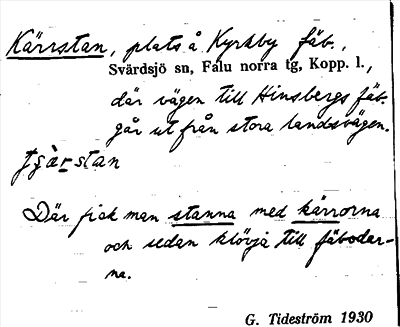 Kärrstan, plats å Kyrkby fäb.,
Svärdsjö sn, Falu norra tg, Kopp. l.,
där vägen till Hinsbergs fäb.
går ut från stora landsvägen.
tjà̀rstan
Där fick man stanna med kärrorna
och sedan klövja till fäbodar-
na.
G. Tideström 1930